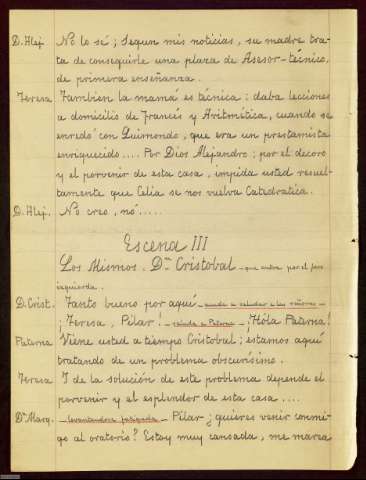 D. Alej. No lo sé; Segun mis noticias, su madre tra-
ta de conseguirle una plaza de Asesor-técnico,
de primera enseñanza.
Teresa Tambien la mamá es técnica: daba lecciones
a domicilio de Francés y Aritmética, cuando se
enredó con Quimondo, que era un prestamista
enriquecido.... Por Dios Alejandro; por el decoro
y el porvenir de esta casa, impida usted resuel-
tamente que Celia se nos vuelva Catedratica.
D. Alej. No creo, nó.....
Escena III
Los Mismos. Dn Cristobal - que entra por el foro
izquierda.
D. Crist. Tanto bueno por aquí - acude a saludar a las señoras -
¡Teresa, Pilar! - saluda a Paterna - ¡Hóla Paterna!
Paterna Viene usted a tiempo Cristobal; estamos aquí
tratando de un problema obscurísimo.
Teresa I de la solución de este problema depende el
porvenir y el esplendor de esta casa....
Dª Marq. - levantandose fatigada - Pilar ¿quieres venir conmi-
go al oratorio? Estoy muy cansada, me marea